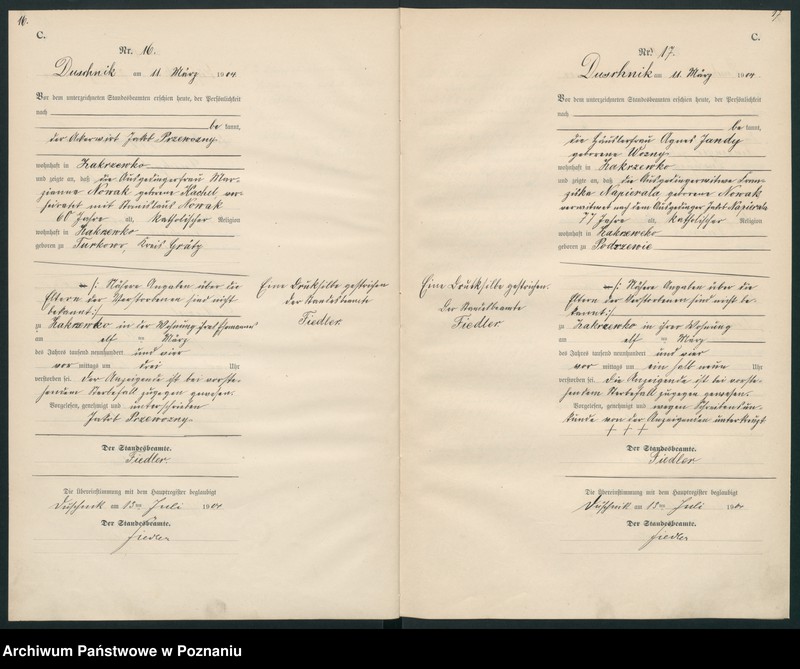 16.
C.
Nr. 16.
Duschnik am 11 März 1904.
Vor dem unterzeichneten Standesbeamten erschien heute, der Persönlichkeit
nach
be kannt,
der Ackerwirt Jakob Przewozny
wohnhaft in Zakrzewko
und zeigte an, daß die Ausgedingerfrau Mar-
zianna Nowak geborene Kachel ver-
heiratet mit Stanislaus Nowak
60 Jahre alt, katholischer Religion
wohnhaft in Zakrzewko
geboren zu Turkowo, Kreis Grätz
/: Nähere Angaben über die
Eltern der Verstorbenen sind nicht
bekannt :/
zu Zakrzewko in der Wohnung ihres Ehemannes
am elf ten März
des Jahres tausend neunhundert und vier
vor mittags um drei Uhr
verstorben sei. Der Anzeigende ist bei vorste-
hendem Sterbefall zugegen gewesen.
Vorgelesen, genehmigt und unterschrieben
Jakob Przewozny
Der Standesbeamte.
Fiedler
Die Übereinstimmung mit dem Hauptregister beglaubigt
Duschnik am Juli 1904
Der Standesbeamte.
Fiedler
Eine Druksilbe gestrichen
Der Standesbeamte
Fiedler
17.
C.
Nr. 17.
Duschnik am 11 März 1904.
Vor dem unterzeichneten Standesbeamten erschien heute, der Persönlichkeit
nach
be kannt,
die Häuslerfrau Agnes Jandy
geborene Wozny
wohnhaft in Zakrzewko
und zeigte an, daß die Ausgedingerwitwe Fran-
ziska Napierala geborene Nowak
verwitwet nach dem Ausgedinger Jakob Napierala
77 Jahre alt, katholischer Religion
wohnhaft in Zakrzewko
geboren zu Podrzewie
/: Nähere Angaben über die
Eltern der Verstorbenen sind nicht be-
kannt :/
zu Zakrzewko in ihrer Wohnung
am elf ten März
des Jahres tausend neunhundert und vier
vor mittags um ein halb neun Uhr
verstorben sei. Die Anzeigende ist bei vorste-
hendem Sterbefall zugegen gewesen.
Vorgelesen, genehmigt und wegen Schreibensun-
kunde von der Anzeigenden unterkreuzt
+ + +
Der Standesbeamte.
Fiedler
Die Übereinstimmung mit dem Hauptregister beglaubigt
Duschnik am Juli 1904
Der Standesbeamte.
Fiedler
Eine Druksilbe gestrichen.
Der Standesbeamte
Fiedler
Archiwum Państwowe w Poznaniu